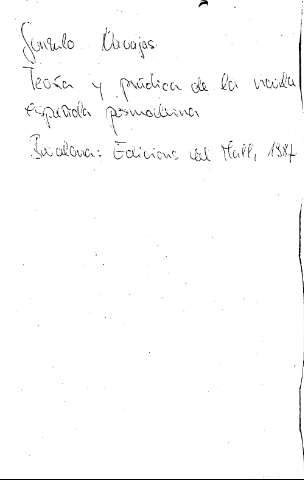 Gonzalo Navajas
Teoría y práctica de la novela
española posmoderna
Barcelona: Edicions del Mall, 1987